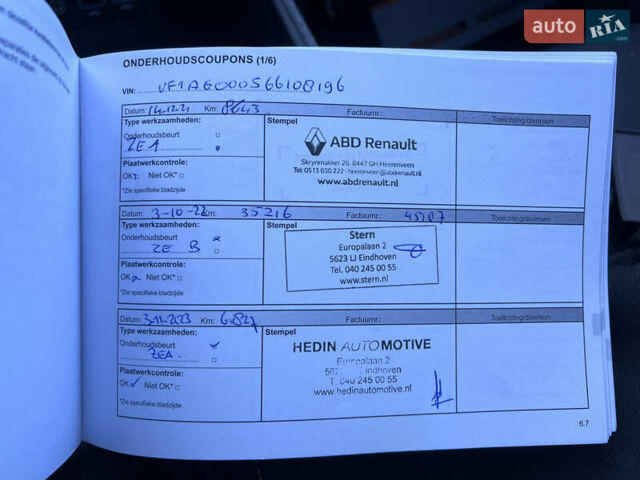 auto RIA.com
ONDERHOUDSCOUPONS (1/6)
VIN: VF1AG000566108196
Datum: 14.12.21 Km: 8643 Factuurnr.: Toelichting/diversen
Type werkzaamheden:
Onderhoudsbeurt
ZEA
Plaatwerkcontrole:
OK Niet OK*
*Zie specifieke bladzijde
Stempel
ABD Renault
Skrynmakker 26, 8447 GH Heerenveen
Tel: 0513 650 222 - heerenveen@abdrenault.nl
www.abdrenault.nl
Datum: 3-10-22 Km: 35216 Factuurnr.: Toelichting/diversen
Type werkzaamheden:
Onderhoudsbeurt
ZE B
Plaatwerkcontrole:
OK Niet OK*
*Zie specifieke bladzijde
Stempel
Stern
Europalaan 2
5623 LJ Eindhoven
Tel. 040 245 00 55
www.stern.nl
Datum: Km: Factuurnr.: Toelichting/diversen
Type werkzaamheden:
Onderhoudsbeurt
ZEA
Plaatwerkcontrole:
OK Niet OK*
*Zie specifieke bladzijde
Stempel
HEDIN AUTOMOTIVE
Europalaan 2
Eindhoven
T. 040 245 00 55
www.hedinautomotive.nl
6.7